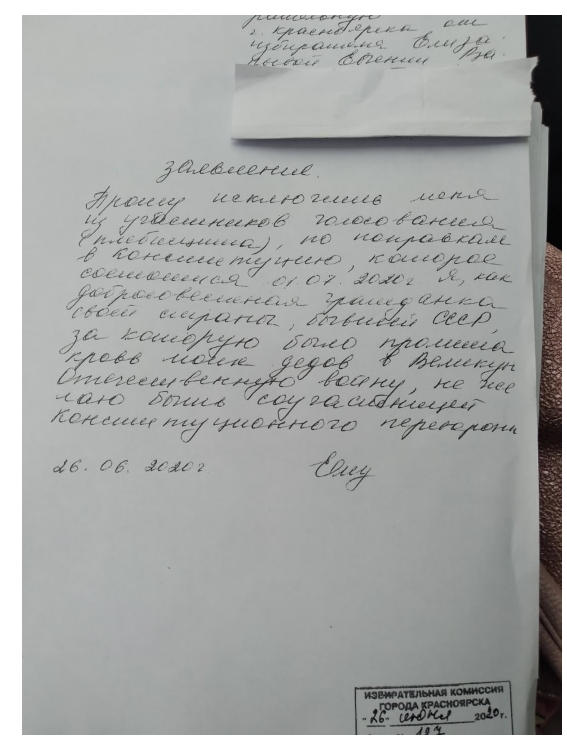 районную
г. Красноярска от
избирателя Елиза
Евгении
Заявление.
Прошу исключить меня
из участников голосования
(плебисцита), по поправкам
в конституцию, которое
состоится 01.07.2020г Я, как
добросовестная гражданка
своей страны, бывшей СССР,
за которую было пролита
кровь моих дедов в Великую
Отечественную войну, не же
лаю быть соучастницей
конституционного переворота
26.06.2020г
ИЗБИРАТЕЛЬНАЯ КОМИССИЯ
ГОРОДА КРАСНОЯРСКА
"26" июня 2020г.
127